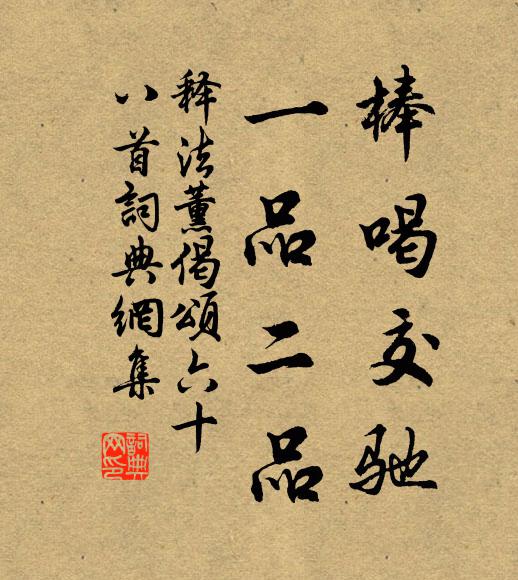 棒喝交馳
一品二品
释法薰偈頌六十
八首詞典網集
詞典
网印